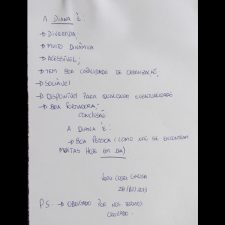 A DIANA É
→ DIVERTIDA
→ MUITO DINÂMICA
→ ACESSÍVEL;
→ TEM BOA CAPACIDADE DE ORGANIZAÇÃO;
→ SOCIÁVEL
→ DISPONÍVEL PARA QUAISQUER EVENTUALIDADES
→ BOA
CONCLUSÃO
A DIANA É:
→ BOA PESSOA (COMO NÃO SE ENCONTRAM
MUITAS HOJE EM DIA)
P.S. → OBRIGADO POR NOS
OBRIGADO